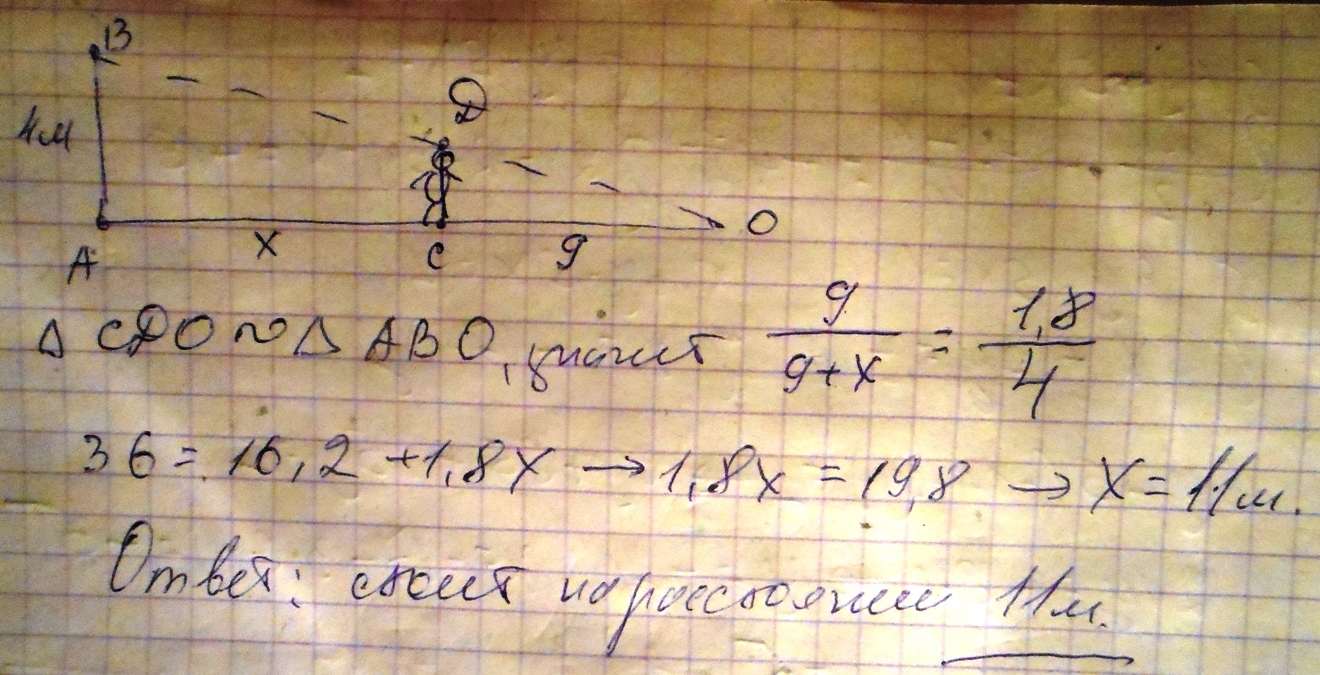 B
4м
D
A x C 9 O
Δ CDO ~ Δ ABO, значит 9/(9+x) = 1,8/4
36 = 16,2 + 1,8x → 1,8x = 19,8 → x = 11м.
Ответ: стоит на расстоянии 11м.